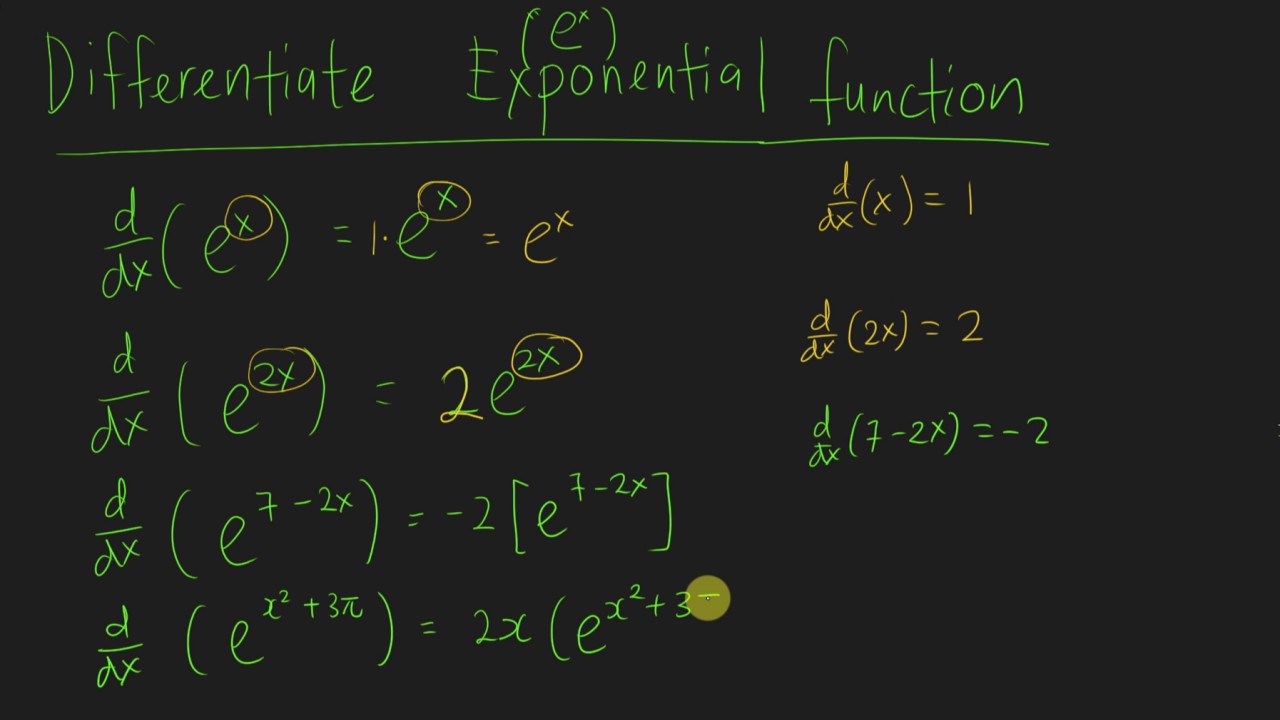 Differentiate Exponential function
(eˣ)
d/dx (eˣ) = 1·eˣ = eˣ
d/dx (x) = 1
d/dx (e²ˣ) = 2e²ˣ
d/dx (2x) = 2
d/dx (7-2x) = -2
d/dx (e^(7-2x)) = -2[e^(7-2x)]
d/dx (e^(x²+3π)) = 2x(e^(x²+3